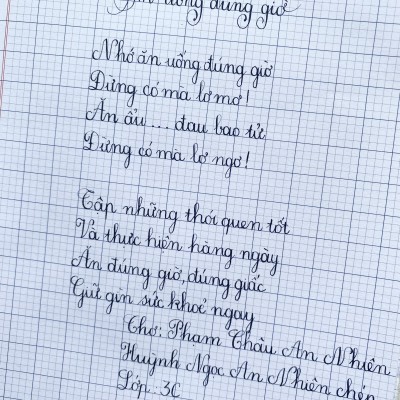 Ăn uống đúng giờ
Nhớ ăn uống đúng giờ
Đừng có mà lơ mơ!
Ăn ẩu... đau bao tử
Đừng có mà lơ ngơ!
Tập những thói quen tốt
Và thực hiện hàng ngày
Ăn đúng giờ, đúng giấc
Giữ gìn sức khoẻ ngay
Thơ: Phạm Châu An Nhiên
Huỳnh Ngọc An Nhiên chép
Lớp 3C